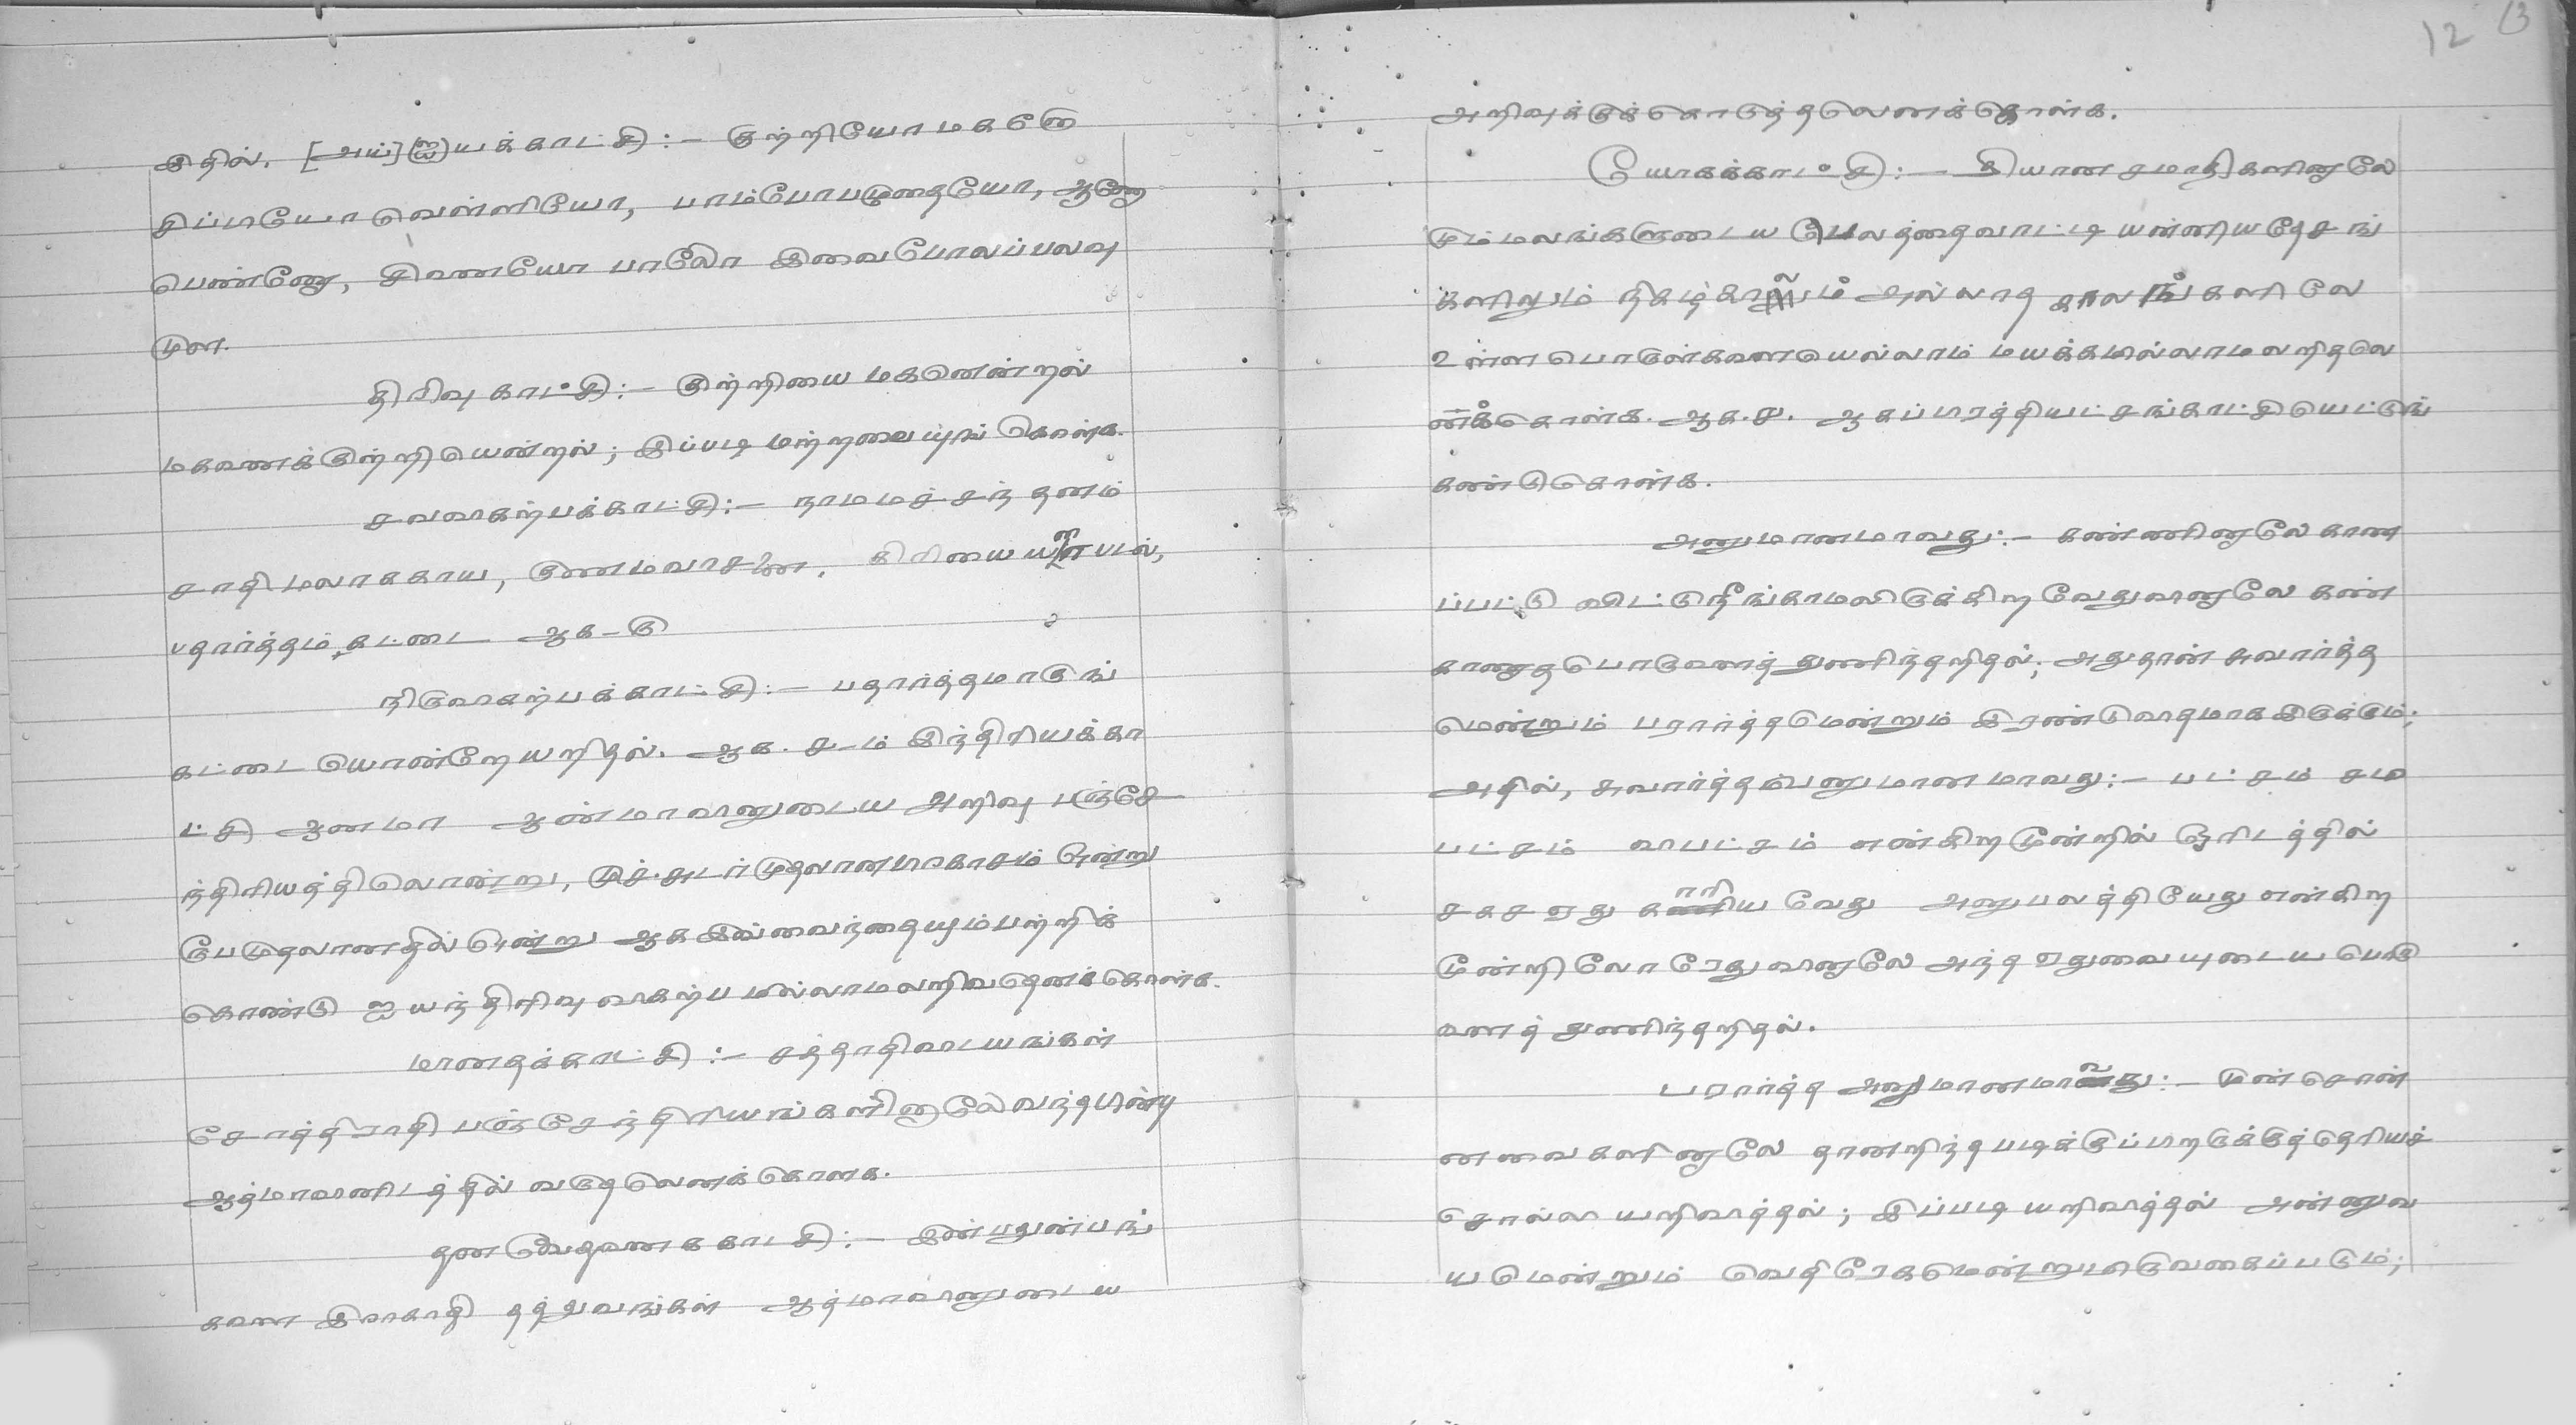 இதில். [அய்](ஐ)யக்காட்சி:- குற்றியோ மகனோ
சிப்பியோ வெள்ளியோ, பாம்போபழுதையோ, ஆணோ
பெண்ணோ, சிவணயோ பாலோ இவைபோலப்பலவு
முள.
திரிவு காட்சி:- குற்றியை மகனென்றல்
மகனைக்குற்றியென்றல்; இப்படி மற்றவையுங் கொள்க.
சவிகற்பக்காட்சி:- நாமமச்சந்தனம்
சாதி மலாக்காய, குணமவாசனை, கிரியையரைபடல்,
பதார்த்தம் கட்டை ஆக-டு
நிருவிகற்பக்காட்சி:- பதார்த்தமாகுங்
கட்டை யொன்றே யறிதல். ஆக. உ-ம் இந்திரியக்கா
ட்சி ஆனமா ஆன்மாவினுடைய அறிவு பஞ்சே
ந்திரியத்திலொன்று, முச்சுடர்முதலானபிரகாசம் ஒன்று
ரூபமுதலானதில் ஒன்று ஆக இவ்வைந்தையும்பற்றிக்
கொண்டு ஐயந்திரிவு விகற்பமில்லாமலறிவதெனக்கொள்க.
மானதக்காட்சி:- சத்தாதிவிடயங்கள்
சோத்திராதி பஞ்சேந்திரியங்களினாலேவந்தபின்பு
ஆத்மாவினிடத்தில் வருதலெனக்கொளக.
தன வேதனைககாடசி:- இன்பதுன்பங்
களை இராகாதி தத்துவங்கள் ஆத்மாவினுடைய
12 13
அறிவுக்குக்கொடுத்தலெனக்கொள்க.
யோகக்காட்சி:- தியான சமாதிகளினாலே
மும்மலங்களுடைய பெலத்தைவாட்டி யன்னியதேசங்
களிலும் நிகழ்காலமும் அல்லாத காலங்களிலே
உள்ள பொருள்களையெல்லாம் மயக்கமில்லாமலறிதலே
னக்கொள்க. ஆக.சு. ஆகப்பிரத்தியட்சங்காட்சியெட்டுங்
கண்டுகொள்க.
அனுமானமாவது:- கண்ணினாலே காண
ப்பட்டு விட்டுநீங்காமலிருக்கிற வேதுவினாலே கண்
காணாதபொருளைத் துணிந்தறிதல்; அதுதான் சுவார்த்த
மென்றும் பரார்த்தமென்றும் இரண்டுவிதமாகஇருக்கும்;
அதில், சுவார்த்தம்பனுமானமாவது:- பட்சம் சம
பட்சம் விபட்சம் என்கிறமூன்றில் ஓரிடத்தில்
சகசஏது காரிய வேது அனுபலத்தியேது என்கிற
மூன்றிலோரேதுவினாலே அந்த ஏதுவையுடைய பொரு
ளைத் துணிந்தறிதல்.
பரார்த்த அனுமானமாவது:- முன் சொன்
னவைகளினாலே தானறிந்தபடிக்குப்பிறருக்குத்தெரியச்
சொல்லி யறிவித்தல்; இப்படி யறிவித்தல் அன்னுவ
யமென்றும் வெதிரேகமென்றுமிருவகைப்படும்;